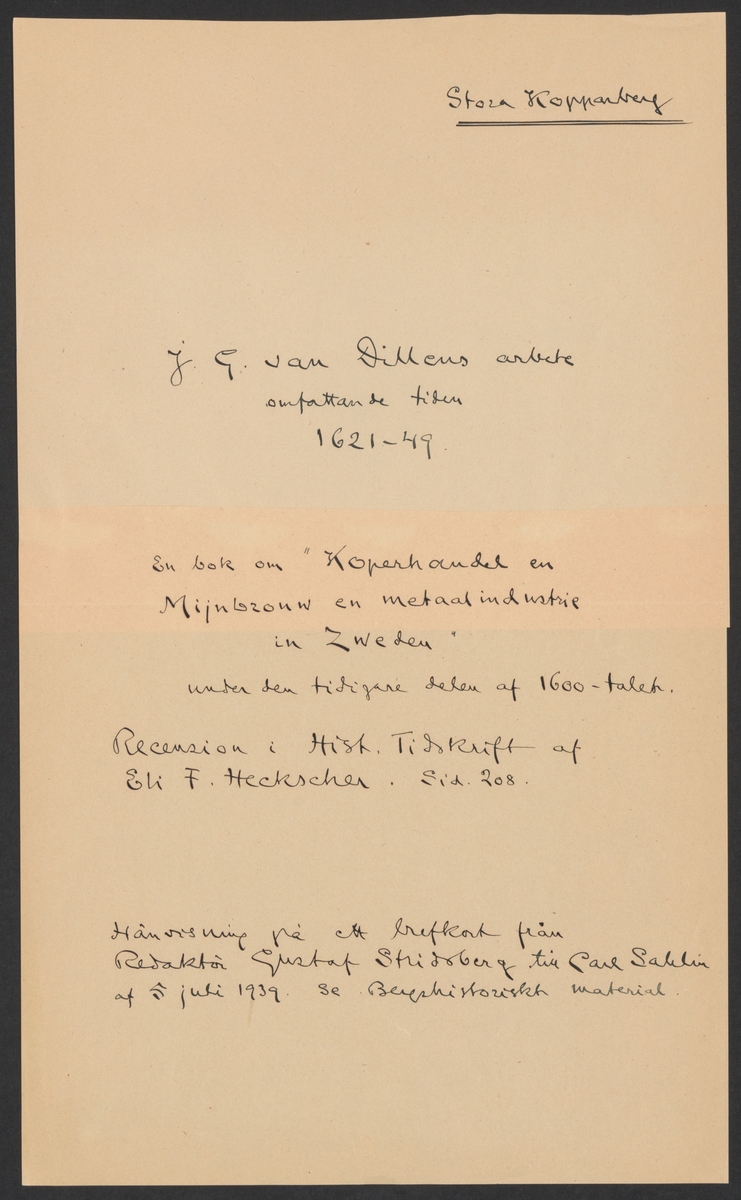 Stora Kopparberg
J. G. van Dillens arbete
omfattande tiden
1621-49.
En bok om "Koperhandel en
Mijnbrouw en metaalindustrie
in Zweden"
under den tidigare delen af 1600-talet.
Recension i Hist. Tidskrift af
Eli F. Heckscher. Sid. 208.
Hänvisning på ett brefkort från
Redaktör Gustaf Stridsberg till Carl Sahlin
af 5 juli 1939. Se Bergshistoriskt material.